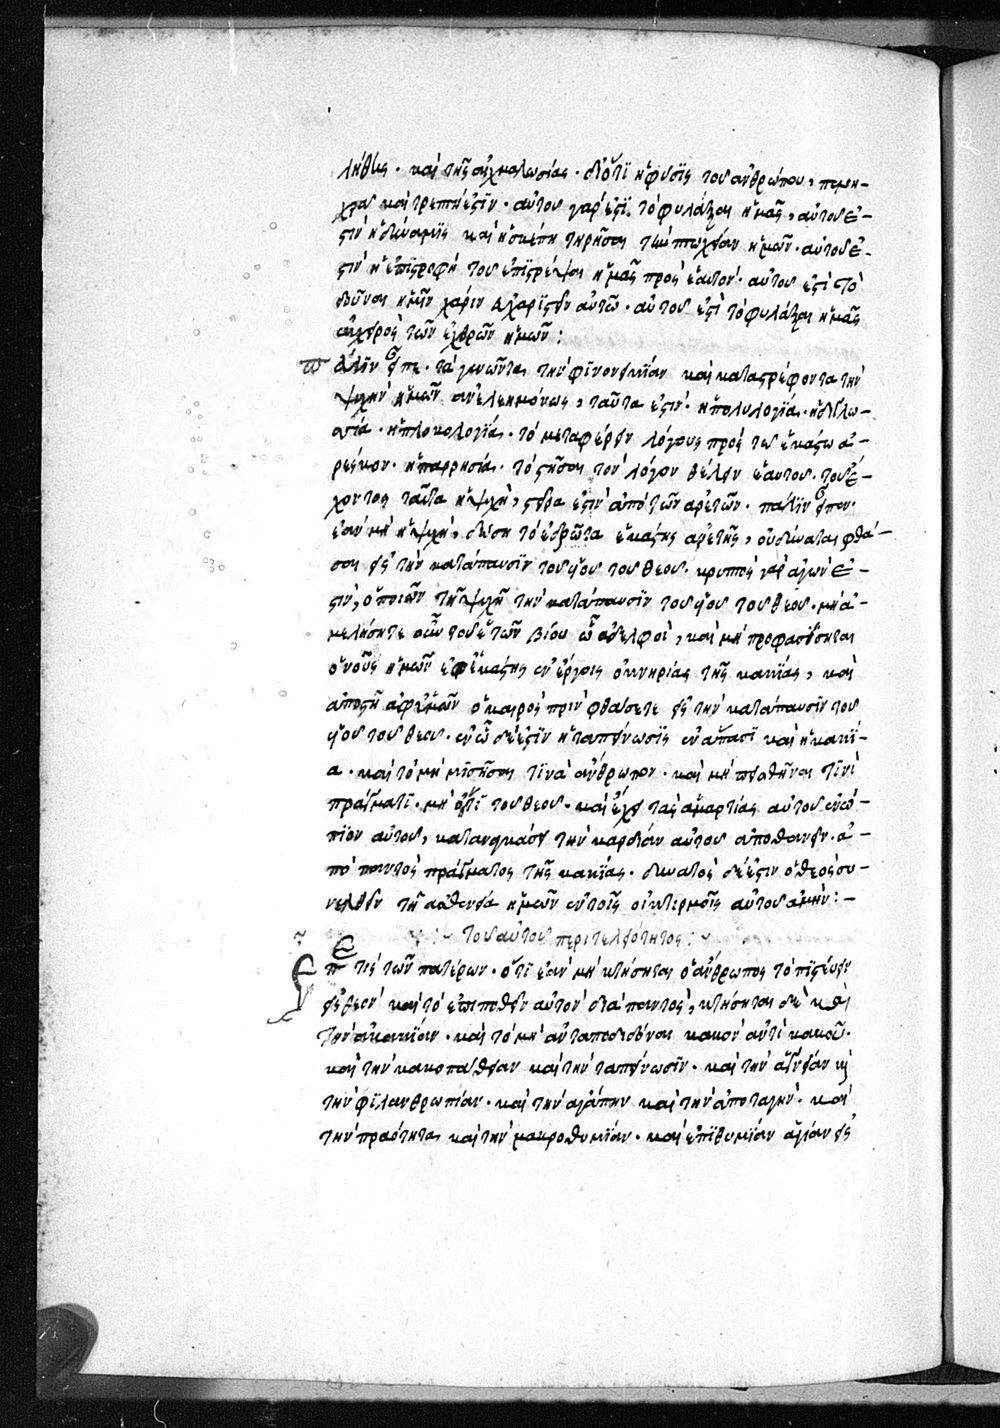 λήθης · καὶ τῆς αἰχμαλωσίας · διότι ἡ φύσις τοῦ ἀνθρώπου,
καὶ τρεπτή ἐστιν · αὐτοῦ γάρ ἐστι τὸ φυλάξαι ἡμᾶς, αὐτοῦ ἐ-
στὶν ἡ δύναμις καὶ ἡ σκέπη τηρῆσαι τὴν πτωχείαν ἡμῶν · αὐτοῦ ἐ-
στὶν ἡ ἐπιστροφὴ τοῦ ἐπιστρέψαι ἡμᾶς πρὸς ἑαυτόν · αὐτοῦ ἐστὶ τὸ
δοῦναι ἡμῖν χάριν εὐχαριστεῖν αὐτῷ · αὐτοῦ ἐστὶ τὸ φυλάξαι ἡμᾶς
ἐκ χειρὸς τῶν ἐχθρῶν ἡμῶν :
πάλιν εἶπε · τὰ γεννῶντα τὴν φιλονεικίαν καὶ καταστρέφοντα τὴν
ψυχὴν ἡμῶν ἀνελεημόνως, ταῦτα ἐστίν · ἡ πολυλογία · ἡ διγλω-
σσία · ἡ πλοκολογία · τὸ μεταφέρειν λόγους πρὸς τὸ ἑκάστῳ ἀ-
ρέσκον · ἡ παρρησία · τὸ στῆσαι τὸν λόγον θέλειν ἑαυτοῦ · τοῦ ἔ-
χοντος ταῦτα ἡ ψυχὴ, στεῖρα ἐστὶν ἀπὸ τῶν ἀρετῶν · πάλιν εἶπεν ·
ἐὰν μὴ ἡ ψυχὴ, δώσῃ τὸ ἱδρῶτα ἑκάστης ἀρετῆς, οὐ δύναται φθά-
σαι εἰς τὴν κατάπαυσιν τοῦ υἱοῦ τοῦ θεοῦ · κρυπτὸς γὰρ ἀγών ἐ-
στιν, ὁ ποιῶν τῇ ψυχῇ τὴν κατάπαυσιν τοῦ υἱοῦ τοῦ θεοῦ · μὴ ἀ-
μελήσητε οὖν τούτων βίου ὦ ἀδελφοὶ, καὶ μὴ προφασίσηται
ὁ νοῦς ἡμῶν ἐφ' ἑκάστης ἐν ἔργοις ὀκνηρίας τῆς κακίας, καὶ
ἀποστῇ ἀφ' ἡμῶν ὁ καιρὸς πρὶν φθάσετε εἰς τὴν κατάπαυσιν τοῦ
υἱοῦ τοῦ θεοῦ · ἐν ᾧ δέ ἐστιν ἡ ταπείνωσις ἐν ἅπασι καὶ ἡ ἀκακί-
α · καὶ τὸ μὴ μισῆσαι τινὰ ἄνθρωπον · καὶ μὴ πεισθῆναι τινὶ
πράγματι · μὴ ὄντι τοῦ θεοῦ · καὶ ἔχει τὰς ἁμαρτίας αὐτοῦ ἐνώ-
πιον αὐτοῦ, καταναγκάσει τὴν καρδίαν αὐτοῦ ἀποθανεῖν · ἀ-
πὸ παντὸς πράγματος τῆς κακίας · δυνατὸς δέ ἐστιν ὁ θεὸς συ-
νελθεῖν τῇ ἀσθενείᾳ ἡμῶν ἐν τοῖς οἰκτιρμοῖς αὐτοῦ ἀμήν : –
τοῦ αὐτοῦ περὶ τελειότητος :
Εἶπέ τις τῶν πατέρων · ὅτι ἐὰν μὴ κτήσηται ὁ ἄνθρωπος τὸ πιστεύειν
εἰς θεὸν καὶ τὸ ἐπιποθεῖν αὐτὸν διὰ παντὸς, κτήσηται δὲ καὶ
τὴν ἀκακίαν · καὶ τὸ μὴ ἀνταποδιδόναι κακὸν ἀντὶ κακοῦ ·
καὶ τὴν κακοπάθειαν καὶ τὴν ταπείνωσιν · καὶ τὴν ἁγνείαν καὶ
τὴν φιλανθρωπίαν · καὶ τὴν ἀγάπην καὶ τὴν ἀποταγήν · καὶ
τὴν πραότητα καὶ τὴν μακροθυμίαν · καὶ ἐπιθυμίαν ἁγίαν εἰς